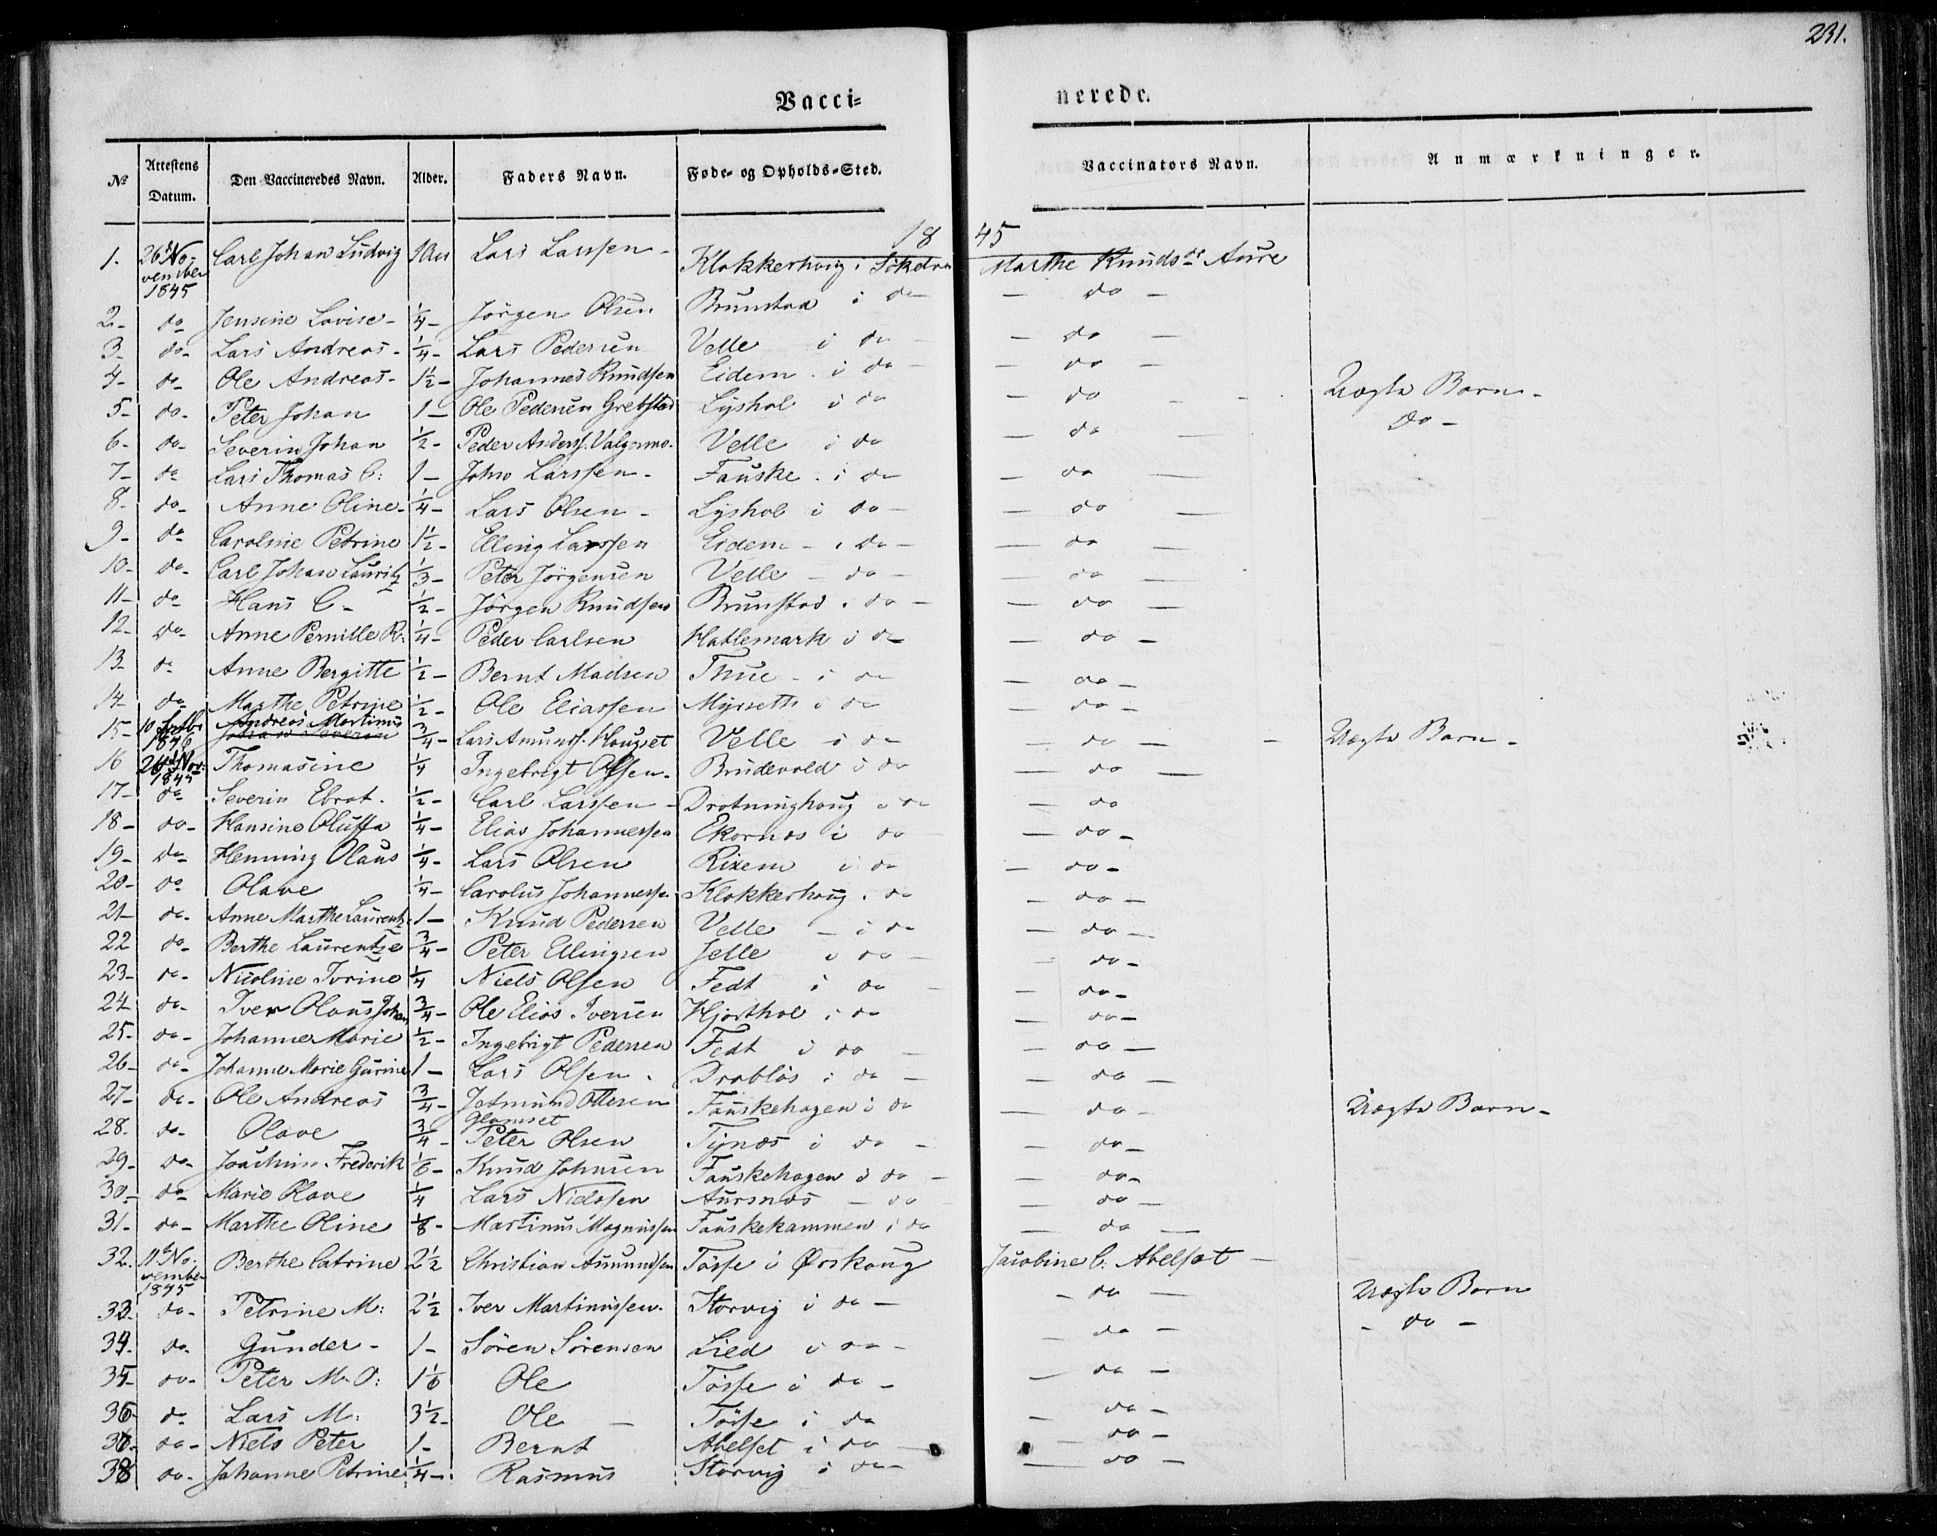 231.
Vacci= nerede.
№ Attestens Datum. Den Vaccineredes Navn. Alder. Faders Navn. Føde- og Opholds-Sted. Vaccinators Navn. Anmærkninger.
18 45
1. 26 November 1845 Carl Johan Ludvig 1 Aar Lars Larssen - Klokkerhoug i Søkelven Marthe Knudsdr Aure
2- do Jensine Lovise- 1/4- Jörgen Olsen Brunstad i do - do -
3- do- Lars Andreas- 1/4- Lars Pedersen Velle i do - do -
4- do- Ole Andreas- 1 1/2- Johannes Knudsen Eidem i do - do -
5- do- Peter Johan 1- Ole Pedersen Grebstad Lyshol i do - do - - Uægte Barn-
6- do- Severin Johan 1/2- Peder Anderss. Valgermo. Velle i do - do - do -
7- do Lars Thomas C: 1- John Larssen- Fauske i do - do -
8- do- Anne Oline- 1/4- Lars Olsen- Lyshol i do- - do -
9- do Caroline Petrine 1 1/2- Elling Larssen Eidem - i do- - do -
10- do- Carl Johan Lauritz 1/3- Peter Jörgensen Velle - do- - do -
11- do- Hans C- 1/2- Jörgen Knudsen Brunstad i do - - do -
12- do- Anne Pernille R. 1/4- Peder Carlsen Hatlemark i do - do -
13- do- Anne Bergitte 1/2- Bernt Madsen Thue - i do - do -
14- do- Marthe Petrine 1/2- Ole Eliassen Myrseth i do - do -
15- 10 1846 Andreas Martinus Johan Severin 3/4- Lars Amunds. Hougset Velle i do - do - - Uægte Barn-
16 26 Nov: 1845 Thomasine 1/4 Ingebrigt Olsen- Brudevold i do - do -
17- do- Severin Ebrat. 1/2- Carl Larssen- Drotninghoug i do - do
18- do- Hansine Oluffa 1/4- Elias Johannessen Ekornæs i do - do -
19- do- Henning Olaus 1/4- Lars Olsen Rixem i do - do -
20- do Olave 1/4- Carolus Johannesse. Klokkerhoug i do - do -
21- do- Anne Marthe Laurentz 1- Knud Pedersen Velle - i do - do -
22 do- Berthe Laurentze 3/4- Peter Ellingsen Jelle i do - - do -
23- do- Nicoline Ivrine 1/4 Niels Olsen Fedt i do - - do -
24- do- Iver Olaus Johan 3/4- Ole Elias Iversen Hjorthol i do - do -
25- do- Johanne Marie 1/2- Ingebrigt Pedersen Fedt i do - - do -
26- do- Johanne Marie Gurine 1- Lars Olsen. Drabløs i do - - do -
27- do- Ole Andreas 3/4- Jetmund Ottesen Glomset Fauskehagen i do - do - Uægte Barn-
28. do- Olave 3/4- Peter Olsen Tynæs i do - - do -
29- do- Joachim Frederik 1/6- Knud Johnsen Fauskehagen i do - - do -
30- do- Marie Olave 1/4 Lars Nielssen Aursnæs - do - do -
31- do- Marthe Oline 1/8- Martinus Magnussen Fauskekammen i do - do -
32. 11 November 1845 Berthe Catrine 2 1/2 Christian Amundsen Tösse i Ørskoug Jacobine C. Abelset -
33- do- Petrine M: 2 1/2 Iver Martinussen. Storvig i do - - do - Uægte Barn
34- do- Gunder- 1- Sören Sörensen Lied i do- - do - - do -
35- do- Peter M. O: 1 1/6 Ole Tösse i do - - do -
36- do- Lars M: 3 1/2- Ole - Tösse i do - do -
37- do- Niels Peter 1- Bernt Abelset i do - - do -
38 do- Johanne Petrine 1/4- Rasmus Storvig i do- - do -